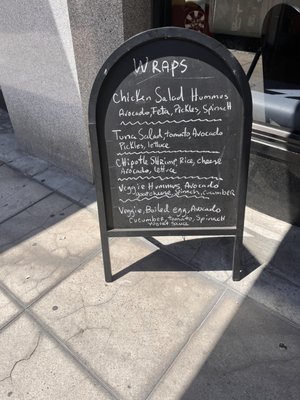 WRAPS
Chicken Salad Hummus
Avocado, Feta, Pickles, Spinach
Tuna Salad, tomato, Avocado
Pickles, lettuce
Chipotle Shrimp, Rice, cheese
Avocado, lettuce
Veggie Hummus, Avocado
cheese, Spinach, cucumber
Veggie, Boiled egg, Avocado
Cucumber, tomato, Spinach
sauce